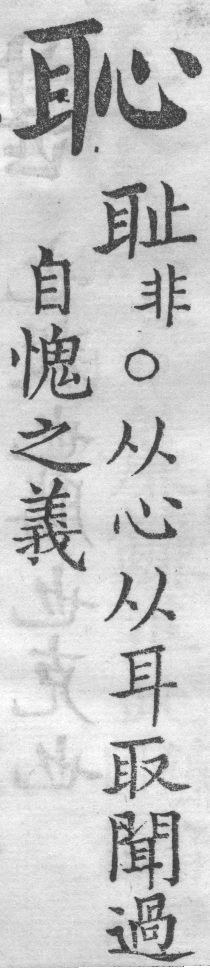 恥
耻非○从心从耳取聞過
自愧之義